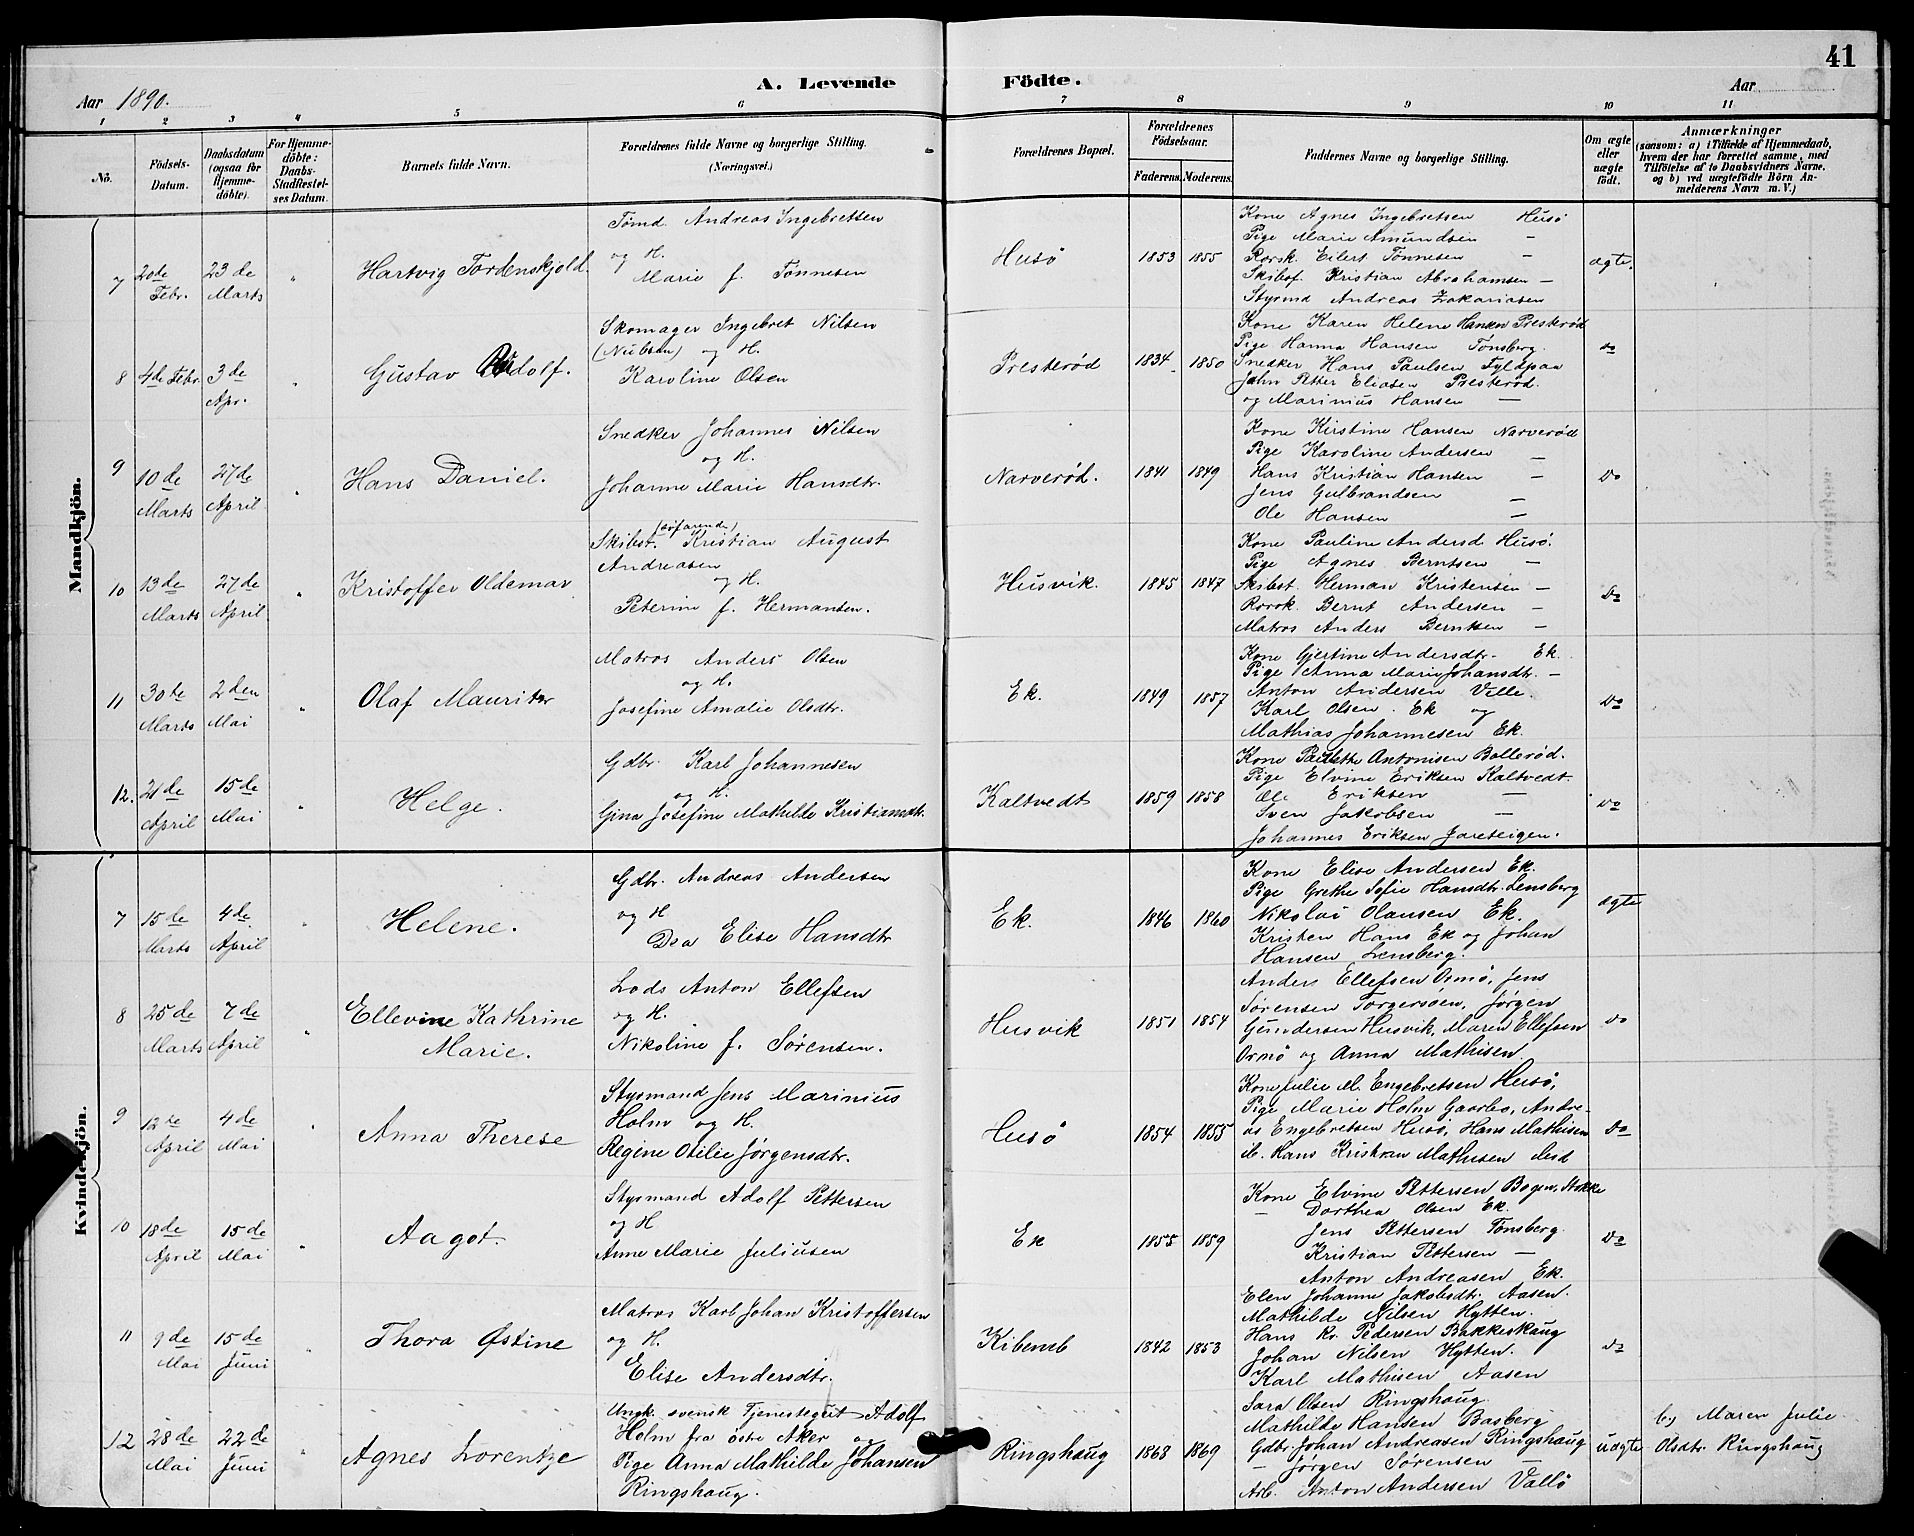 41
Aar 1890.
A. Levende Födte.
Aar
1 2 3 4 5 6 7 8 9 10 11
No.
Födsels-
Datum.
Daabsdatum
(ogsaa for
Hjemme-
döbte).
For Hjemme-
döbte:
Daabs-
Stadfæstel-
ses Datum.
Barnets fulde Navn.
Forældrenes fulde Navne og borgerlige Stilling.
(Næringsvei.)
Forældrenes Bopæl.
Forældrenes
Födselsaar.
Faderens. Moderens.
Faddernes Navne og borgerlige Stilling.
Om ægte
eller
uægte
födt.
Anmærkninger
(saasom: a) i Tilfælde af Hjemmedaab,
hvem der har forrettet samme, med
Tilföielse af to Daabsvidners Navne,
og b) ved uægtefödte Börn An-
melderens Navn m. V.)
Mandkjön.
7
20de
Febr.
23de
Marts
"
Hartvig Tordenskjold.
Tømd. Andreas Ingebretsen
og H.
Marie f. Tønnesen
Husö
1853 1855
Kone Agnes Ingebretsen Husö
Pige Marie Amundsen —
Rorsk. Eilert Tönnesen —
Skibsf. Kristian Abrahamsen —
Styrmd Andreas Zakariasen
ægte.
8
4de Febr.
3de
Apr.
"
Gustav Adolf.
Skomager Ingebret Nilsen
og H.
Karoline Olsen
Presterød
1834 1850
Kone Karen Helene Hansen Presterød
Pige Hanna Hansen Tønsberg.
Snedker Hans Paulsen Fyldpaa
John Petter Eliasen Presterød.
og Marinius Hansen —
do
9
10de
Marts
27de
April
"
Hans Daniel.
Snedker Johannes Nilsen
og H.
Johanne Marie Hansdtr.
Narverød.
1841 1849
Kone Kirstine Hansen Narverød
Pige Karoline Andersen —
Hans Kristian Hansen —
Jens Gulbrandsen —
Ole Hansen —
do
10
13de
Marts
27de
April
"
Kristoffer Oldemar
(søfarende)
Skibst. Kristian August
Andreasen
og H.
Peterine f. Hermansen.
Husvik.
1845 1847
Kone Pauline Andersd. Husö.
Pige Agnes Berntsen —
Skibst. Herman Kristensen —
Rorsk. Bernt Andersen —
Matros Anders Berntsen —
do
11
30te
Marts
2den
Mai
"
Olaf Mauritz
Matros Anders Olsen
og H.
Josefine Amalie Olsdtr.
Ek.
1849 1857
Kone Gjertine Andersdtr. Ek.
Pige Anna Marie Johansdtr. —
Anton Andersen Velle.
Karl Olsen. Ek og
Mathias Johannesen Ek.
do
12.
21de
April
15de
Mai
"
Helge.
Gdbr. Karl Johannesen
og H.
Gina Josefine Mathilde Kristiansdtr.
Kaltvedt
1859 1858
Kone Paulette Antonisen Bollerød.
Pige Elvine Eriksen Kaltvedt
Ole Eriksen —
Sven Jakobsen —
Johannes Eriksen Jareteigen.
do
Kvindekjön.
7
15de
Marts
4de
April
"
Helene.
Gdbr. Andreas Andersen
og H
Dea Elise Hansdtr
Ek.
1846 1860
Kone Elise Andersen Ek.
Pige Grethe Sofie Hansdtr. Lensberg
Nikolai Olausen Ek.
Kristen Hans Ek og Johan
Hansen Lensberg.
ægte
8
25de
Marts
7de
April
"
Ellevine Kathrine
Marie.
Lods Anton Ellefsen
og H.
Nikoline f. Sörensen.
Husvik
1851 1854
Anders Ellefsen Ormö, Jens
Sørensen Torgersøen, Jørgen
Gundersen Husvik, Maren Ellefsen
Ormö og Anna Mathisen
do
9
12te
April
4de
Mai
"
Anna Therese
Styrmand Jens Marinius
Holm og H.
Regine Otilie Jørgensdtr.
Husö
1854 1855
Kone Julie M. Engebretsen Husö,
Pige Marie Holm Gaarbo, Andre-
as Engebretsen Husö, Hans Mathisen
ib. Hans Kristian Mathisen ibid
do
10
18de
April
15de
Mai
"
Aagot.
Styrmand Adolf Pettersen
og H
Anne Marie Juliusen
Ek
1855 1859
Kone Elvine Pettersen Bogen, Stokke
— Dorthea Olsen Ek.
Jens Pettersen Tønsberg.
Kristian Pettersen —
Anton Andreasen Ek.
do
11
9de
Mai
15de
Juni
"
Thora Østine
Matros Karl Johan Kristoffersen
og H.
Elise Andersdtr.
1842 1853
Elen Johanne Jakobsdtr. Aasen.
Mathilde Nilsen Hytten.
Hans Kr. Pedersen Bakkeskaug
Johan Nilsen Hytten.
Karl Mathisen Aasen
do
12
28de
Mai
22de
Juni
"
Agnes Lorentze
Ungk. svensk Tjenestegut Adolf
Holm fra østre Aker og
Pige Anna Mathilde Johansen
Ringshaug.
Ringshaug
1868 1869
Sara Olsen Ringshaug.
Mathilde Hansen Basberg
Gdbr. Johan Andreasen Ringshaug
— Jørgen Sørensen —
Arb. Anton Andersen Vallö
uægte
b) Maren Julie
Olsdtr. Ringshaug